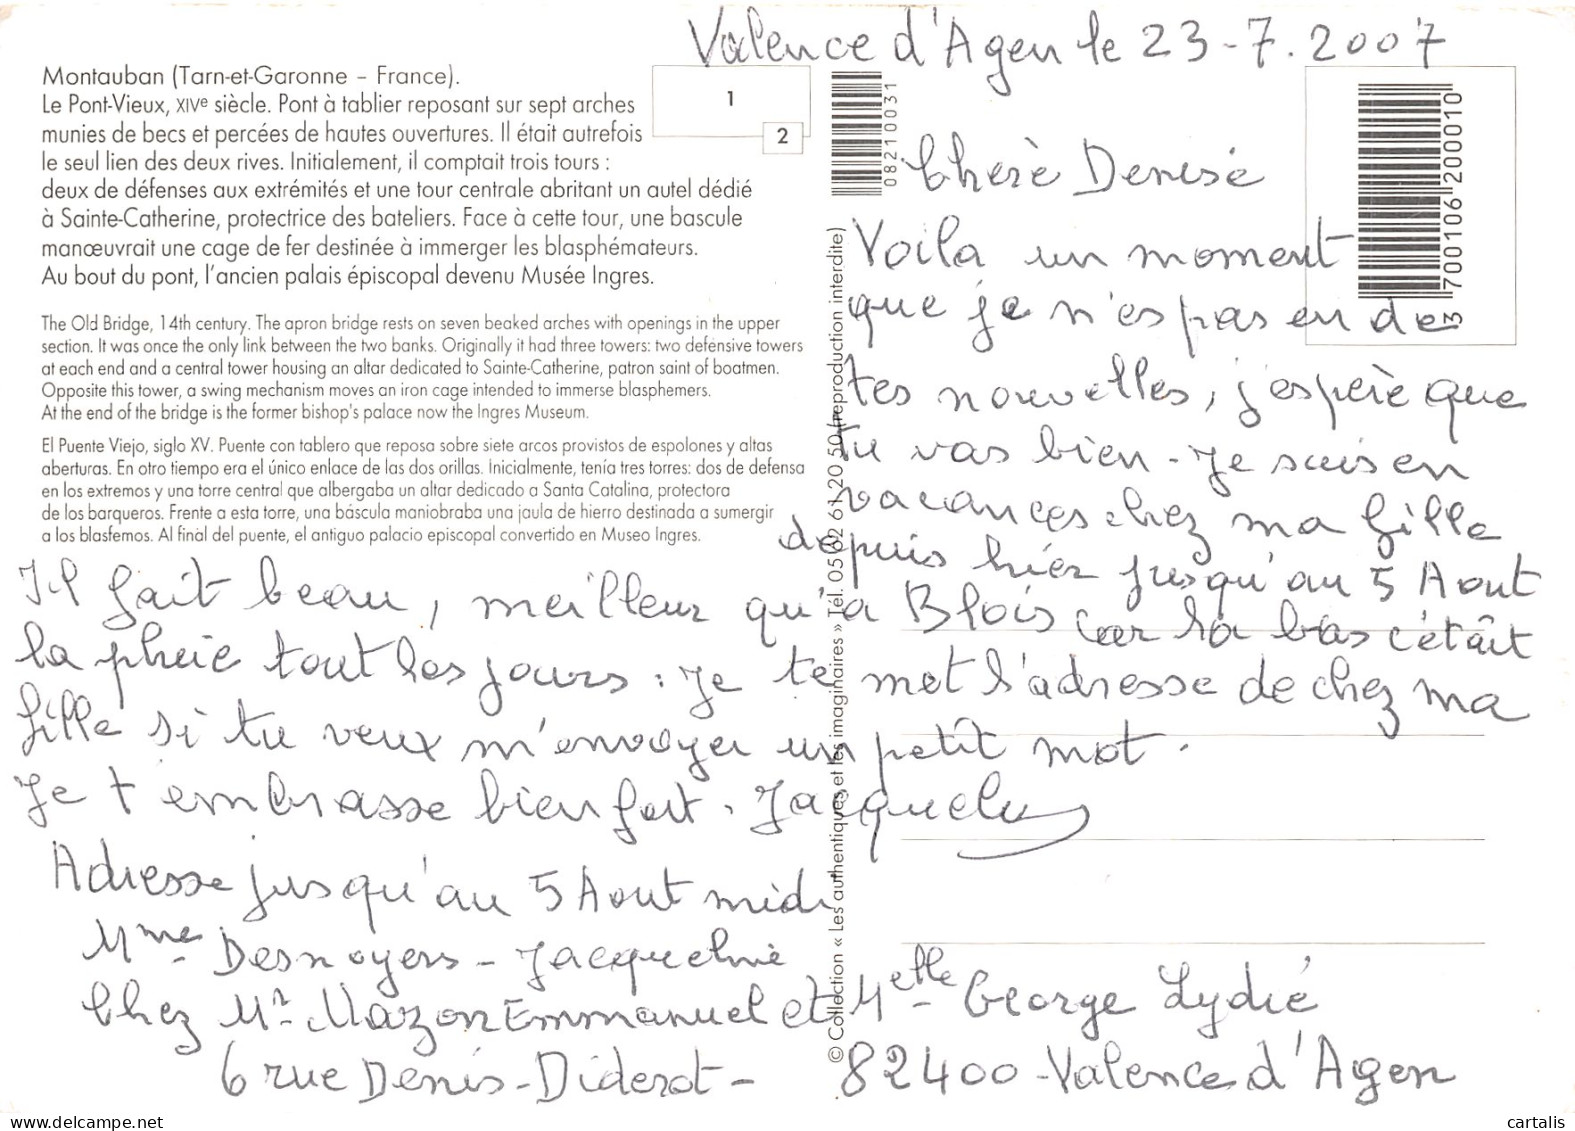 Valence d'Agen le 23-7.2007
Montauban (Tarn-et-Garonne – France).
Le Pont-Vieux, XIVe siècle. Pont à tablier reposant sur sept arches
munies de becs et percées de hautes ouvertures. Il était autrefois
le seul lien des deux rives. Initialement, il comptait trois tours :
deux de défenses aux extrémités et une tour centrale abritant un autel dédié
à Sainte-Catherine, protectrice des bateliers. Face à cette tour, une bascule
manœuvrait une cage de fer destinée à immerger les blasphémateurs.
Au bout du pont, l'ancien palais épiscopal devenu Musée Ingres.
The Old Bridge, 14th century. The apron bridge rests on seven beaked arches with openings in the upper
section. It was once the only link between the two banks. Originally it had three towers: two defensive towers
at each end and a central tower housing an altar dedicated to Sainte-Catherine, patron saint of boatmen.
Opposite this tower, a swing mechanism moves an iron cage intended to immerse blasphemers.
At the end of the bridge is the former bishop's palace now the Ingres Museum.
El Puente Viejo, siglo XV. Puente con tablero que reposa sobre siete arcos provistos de espolones y altas
aberturas. En otro tiempo era el único enlace de las dos orillas. Inicialmente, tenía tres torres: dos de defensa
en los extremos y una torre central que albergaba un altar dedicado a Santa Catalina, protectora
de los barqueros. Frente a esta torre, una báscula maniobraba una jaula de hierro destinada a sumergir
a los blasfemos. Al final del puente, el antiguo palacio episcopal convertido en Museo Ingres.
1
2
08210031
3 700106 200010
© Collection « Les authentiques et les imaginaires » Tél. 05 62 61 20 50 (reproduction interdite)
Chère Denise
Voila un moment
que je n'es pas eu de
tes nouvelles, j'espère que
tu vas bien - Je suis en
vacances chez ma fille
depuis hier jusqu'au 5 Aout
Il fait beau, meilleur qu'a Blois car la bas c'était
la pluie tout les jours. Je te met l'adresse de chez ma
fille si tu veux m'envoyer un petit mot.
Je t'embrasse bien fort. Jacqueline
Adresse jusqu'au 5 Aout midi
Mme Desnoyers - Jacqueline
Chez Mr Mazon Emmanuel et Melle George Lydie
6 rue Denis-Diderot - 82400 - Valence d'Agen
cartalis